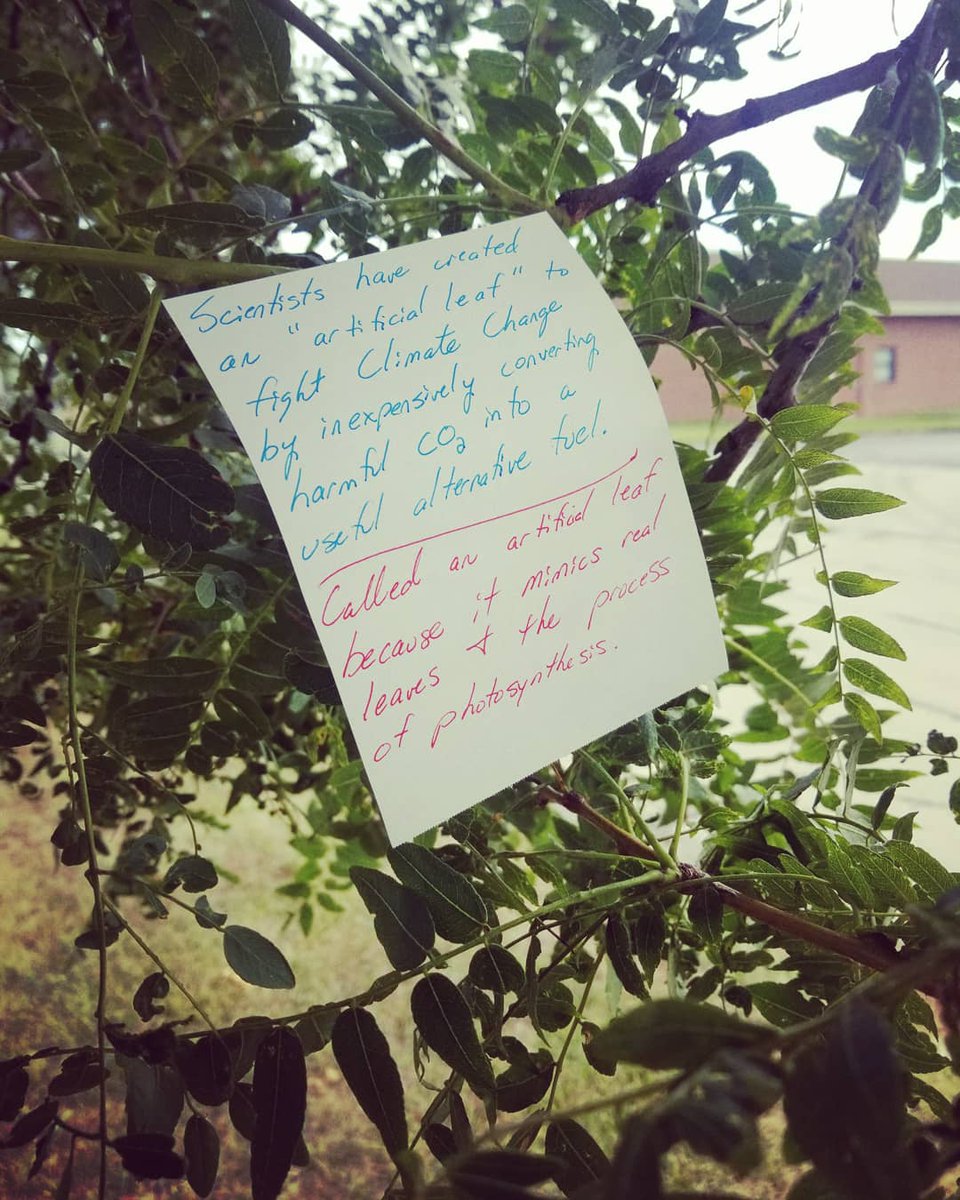 Scientists have created
an "artificial leaf" to
fight Climate Change
by inexpensively converting
harmful CO₂ into a
useful alternative fuel.
Called an artificial leaf
because it mimics real
leaves & the process
of photosynthesis.